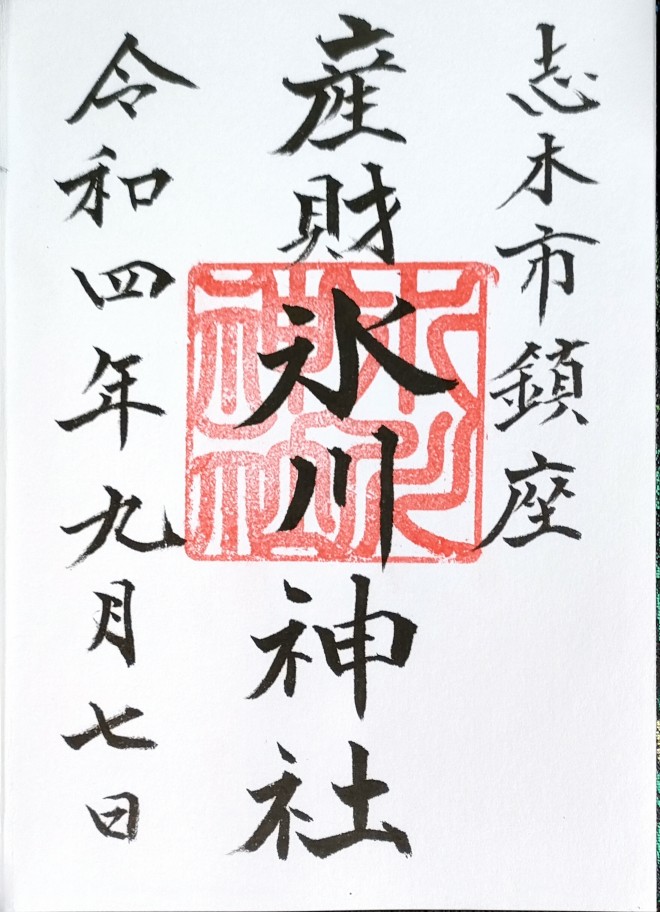 志木市鎮座
産財氷川神社
令和四年九月七日
氷川神社